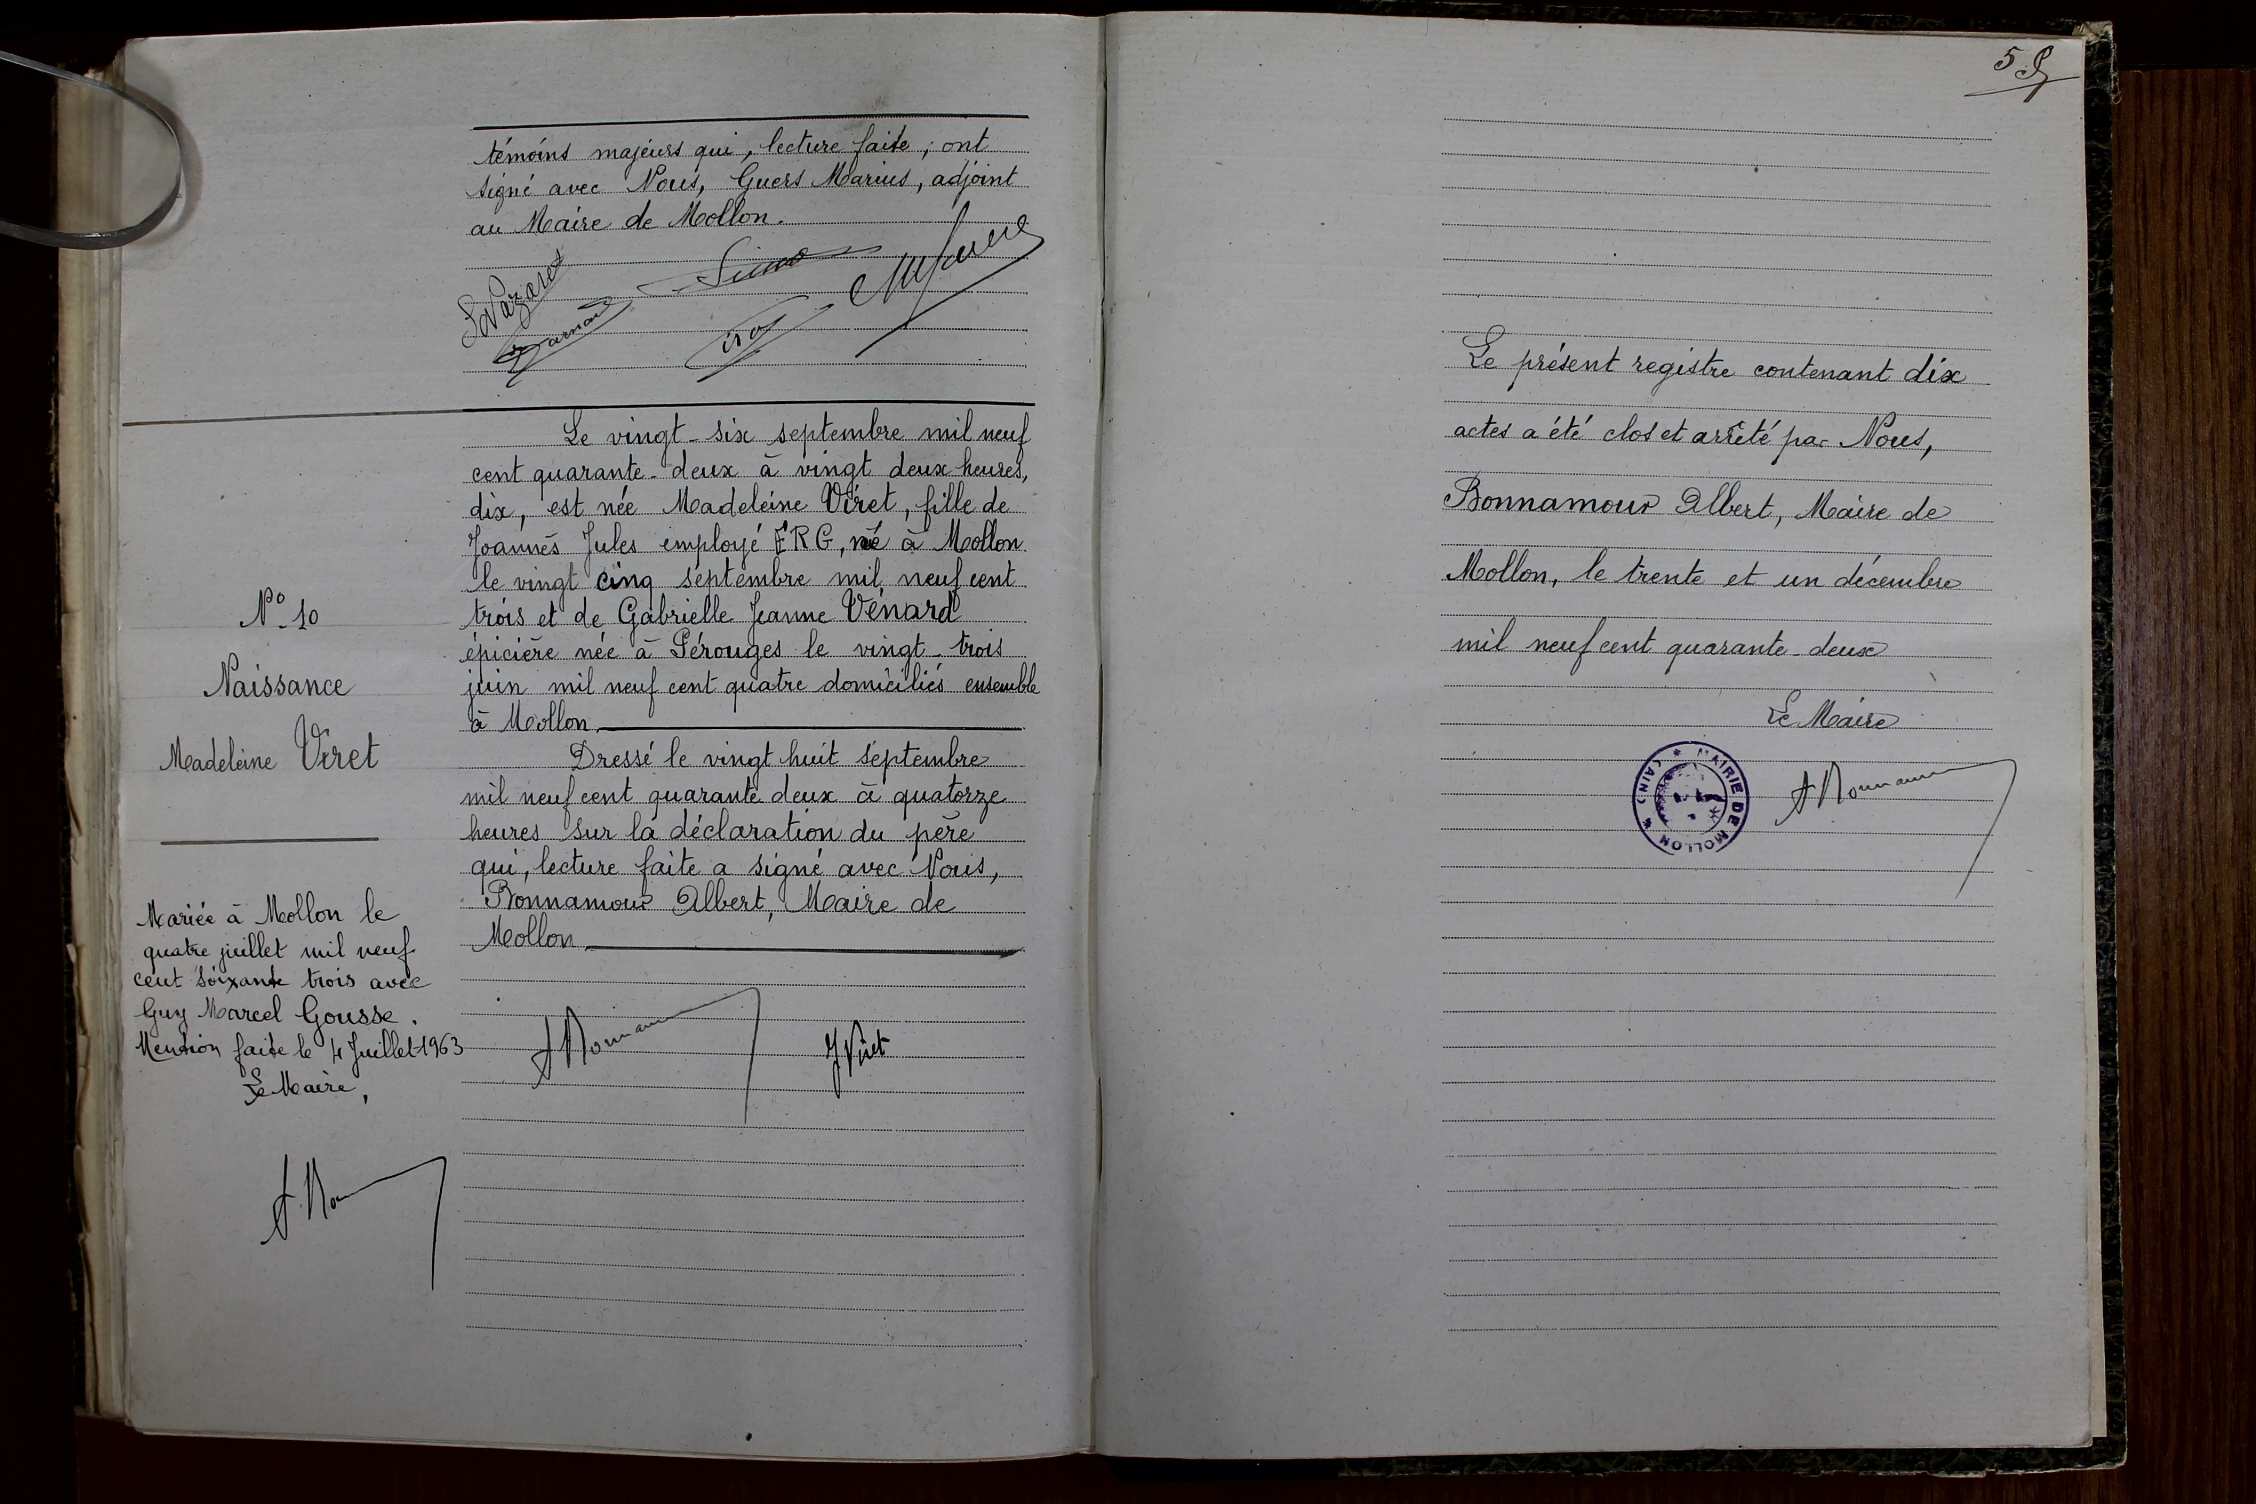 témoins majeurs qui, lecture faite, ont
signé avec Nous, Guers Marius, adjoint
au Maire de Mollon.
Le vingt-six septembre mil neuf
cent quarante-deux à vingt deux heures,
dix, est née Madeleine Viret, fille de
Joannès Jules employé ERG, né à Mollon
le vingt cinq septembre mil neuf cent
trois et de Gabrielle Jeanne Vénard
épicière née à Pérouges le vingt-trois
juin mil neuf cent quatre domiciliés ensemble
à Mollon
Dressé le vingt huit septembre
mil neuf cent quarante deux à quatorze
heures sur la déclaration du père
qui, lecture faite a signé avec Nous,
Bonnamour Albert, Maire de
Mollon
J Viret
N° 10
Naissance
Madeleine Viret
Mariée à Mollon le
quatre juillet mil neuf
cent soixante trois avec
Guy Marcel Gousse.
Mention faite le 4 Juillet 1963
Le Maire,
Le présent registre contenant dix
actes a été clos et arrêté par Nous,
Bonnamour Albert, Maire de
Mollon, le trente et un décembre
mil neuf cent quarante-deux
Le Maire
MAIRIE DE MOLLON * (AIN) *